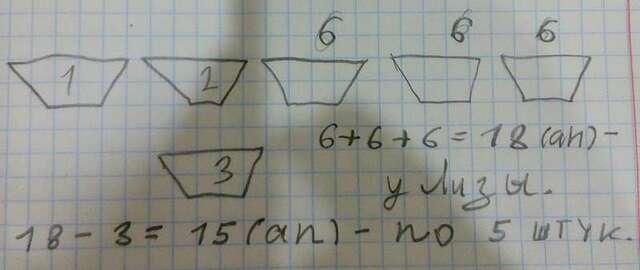 6 6 6
1 2
6+6+6=18(ап)-
3
у Лизы.
18-3=15(ап)-по 5 штук.